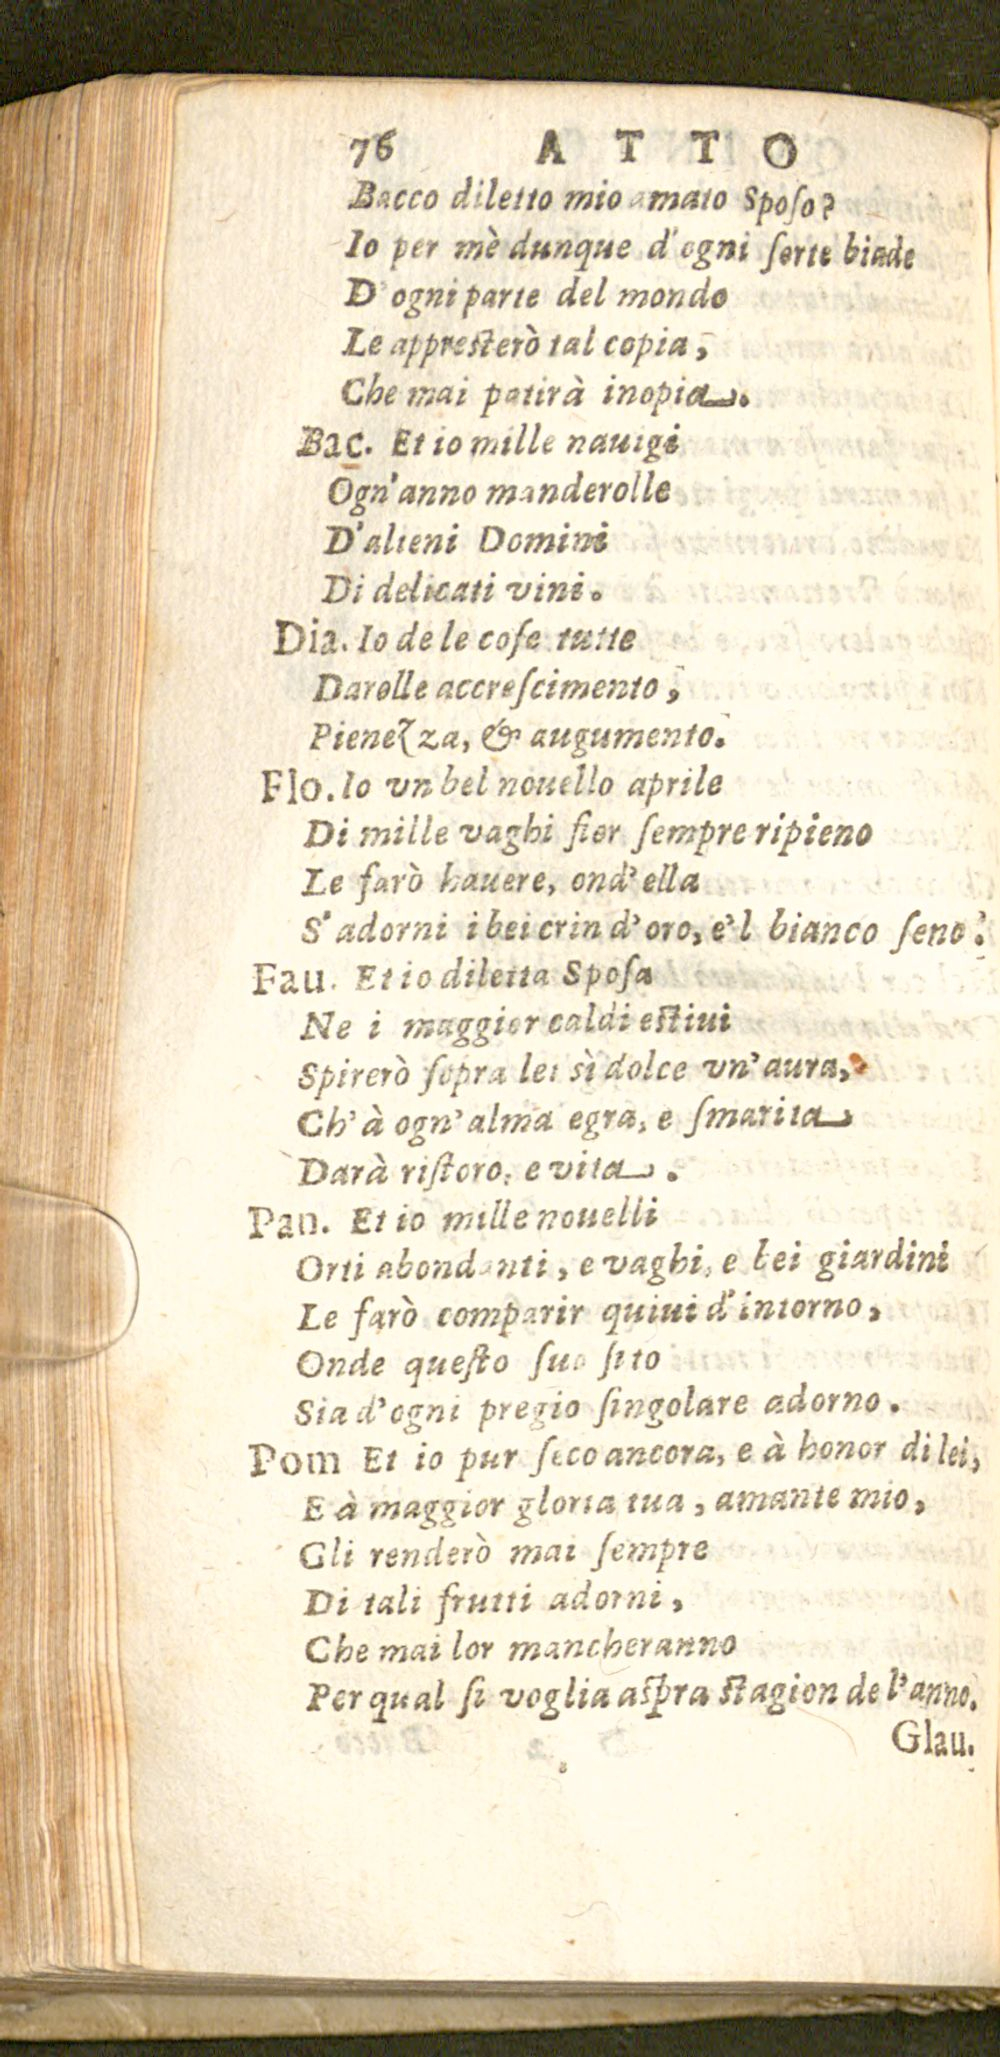 76 ATTO
Bacco diletto mio amato Sposo?
Io per mè dunque d'ogni sorte biade
D'ogni parte del mondo
Le appresterò tal copia,
Che mai patirà inopia.
Bac. Et io mille nauigi
Ogn'anno manderolle
D'alieni Domini
Di delicati vini.
Dia. Io de le cose tutte
Darolle accrescimento,
Pienezza, & augumento.
Flo. Io vn bel nouello aprile
Di mille vaghi fior sempre ripieno
Le farò hauere, ond'ella
S'adorni i bei crin d'oro, e'l bianco seno.
Fau. Et io diletta Sposa
Ne i maggior caldi estiui
Spirerò sopra lei sì dolce vn'aura,
Ch'à ogn'alma egra, e smarita
Darà ristoro, e vita.
Pan. Et io mille nouelli
Orti abondanti, e vaghi, e bei giardini
Le farò comparir quiui d'intorno,
Onde questo suo sito
Sia d'ogni pregio singolare adorno.
Pom Et io pur seco ancora, e à honor di lei,
E à maggior gloria tua, amante mio,
Gli renderò mai sempre
Di tali frutti adorni,
Che mai lor mancheranno
Per qual si voglia aspra stagion de l'anno.
Glau.